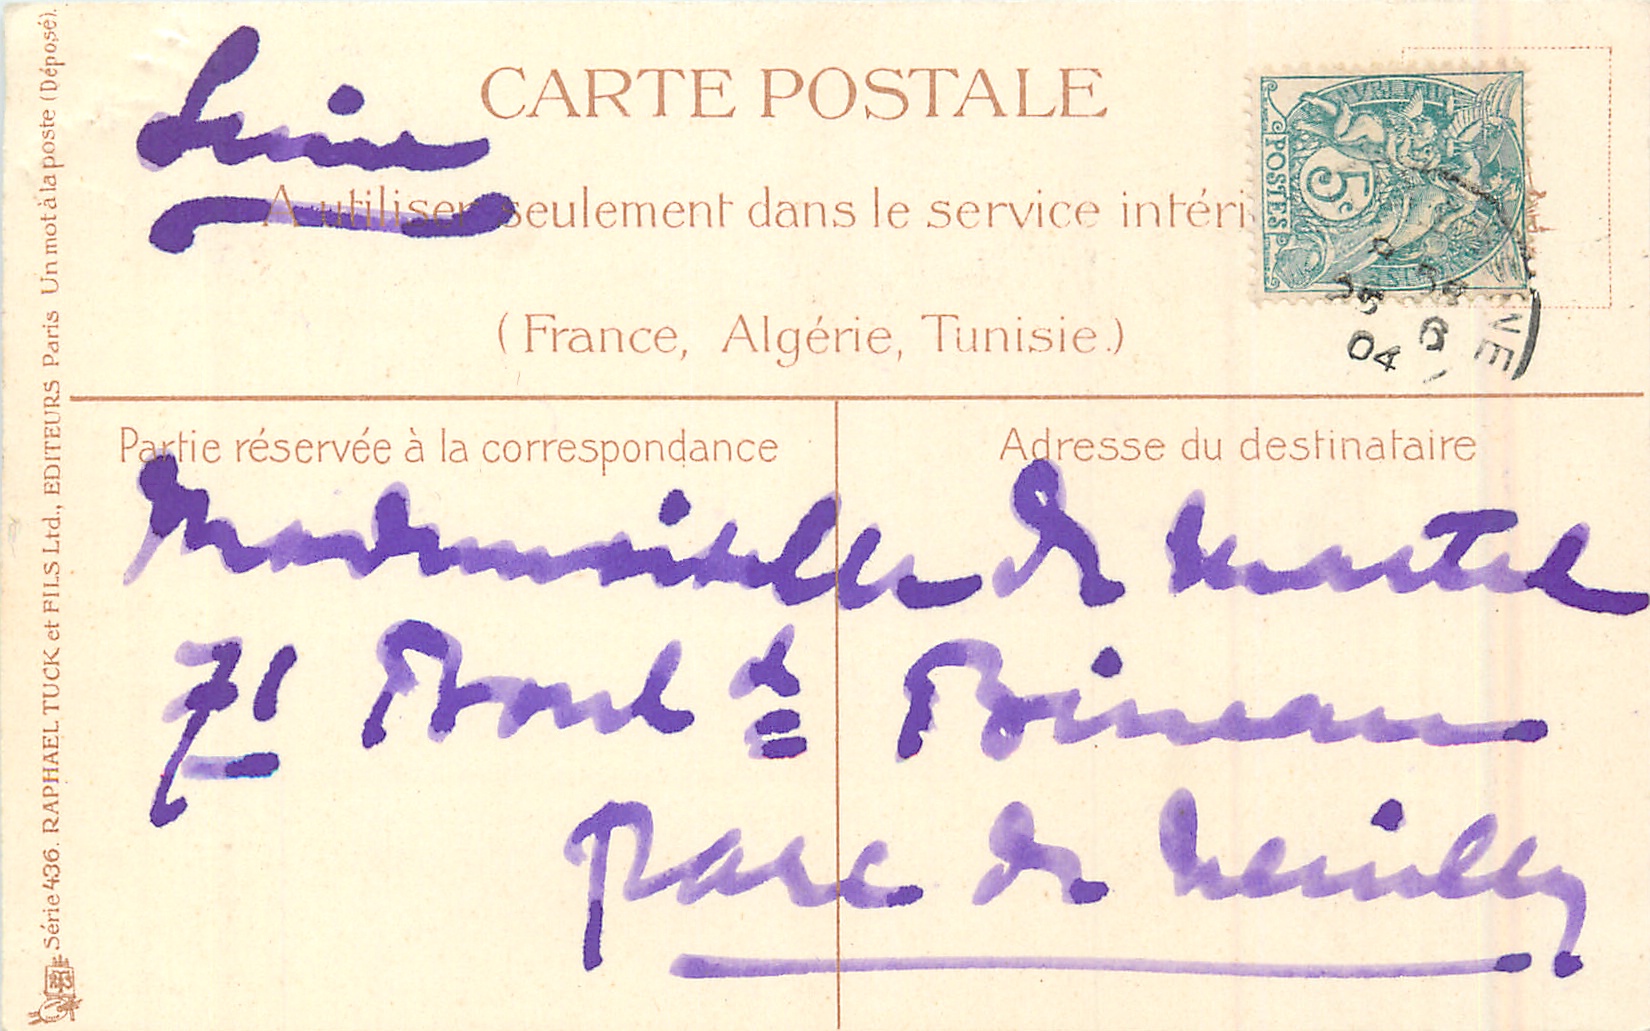 CARTE POSTALE
Seine
A utiliser seulement dans le service intéri
(France, Algérie, Tunisie.)
POSTES
5c
25
6
04
NE
Partie réservée à la correspondance
Adresse du destinataire
Mademoiselle de Martel
71 Boul d Bineau
Parc de Neuilly
Série 436. RAPHAEL TUCK et FILS Ltd., EDITEURS Paris Un mot à la poste (Déposé).